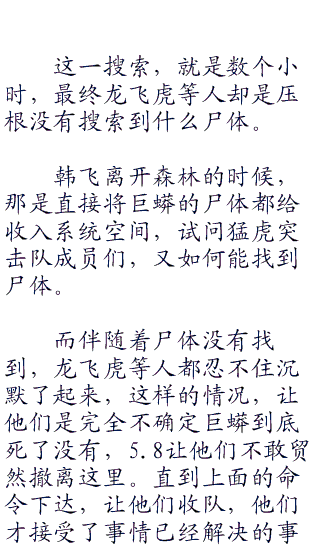 这一搜索，就是数个小
时，最终龙飞虎等人却是压
根没有搜索到什么尸体。
韩飞离开森林的时候，
那是直接将巨蟒的尸体都给
收入系统空间，试问猛虎突
击队成员们，又如何能找到
尸体。
而伴随着尸体没有找
到，龙飞虎等人都忍不住沉
默了起来，这样的情况，让
他们是完全不确定巨蟒到底
死了没有，5.8让他们不敢贸
然撤离这里。直到上面的命
令下达，让他们收队，他们
才接受了事情已经解决的事